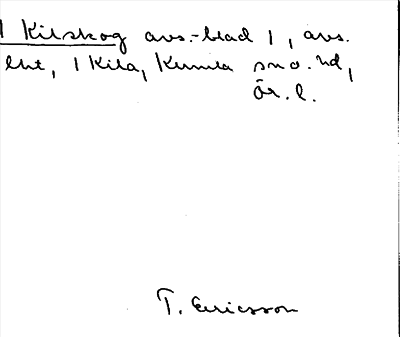 1 Kilskog avs.-blad 1, avs.
lht, 1 Kila, Kumla sn o. hd,
Ör. l.
T. Ericsson